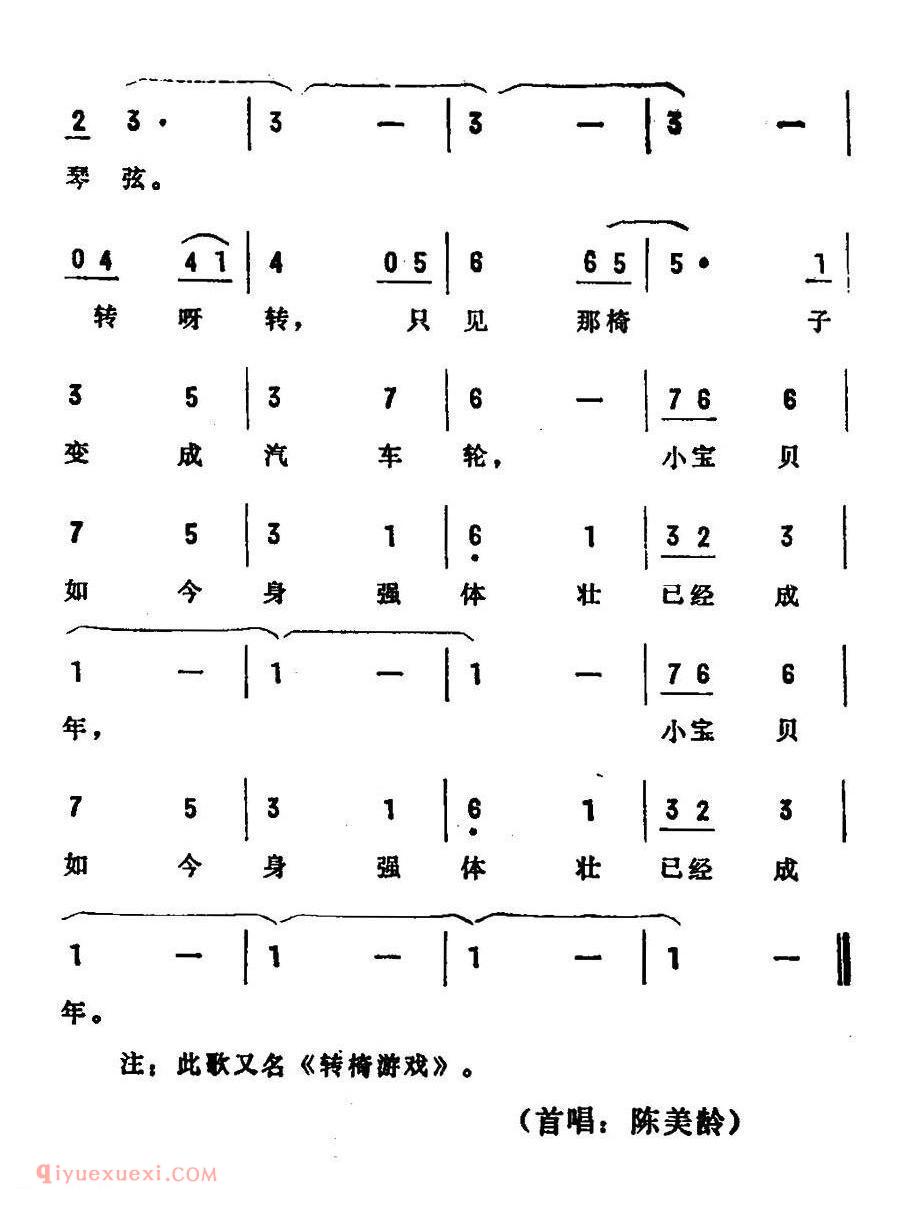 2 3 · | 3 — | 3 — | 3 — |
琴 弦。
0 4 4 1 | 4 0 5 | 6 6 5 | 5 · 1 |
转 呀 转， 只 见 那 椅 子
3 5 | 3 7 | 6 — | 7 6 6 |
变 成 汽 车 轮， 小 宝 贝
7 5 | 3 1 | 6̣ 1 | 3 2 3 |
如 今 身 强 体 壮 已 经 成
1 — | 1 — | 1 — | 7 6 6 |
年， 小 宝 贝
7 5 | 3 1 | 6̣ 1 | 3 2 3 |
如 今 身 强 体 壮 已 经 成
1 — | 1 — | 1 — | 1 — ‖
年。
注：此歌又名《转椅游戏》。
（首唱：陈美龄）
qiyuexuexi.com